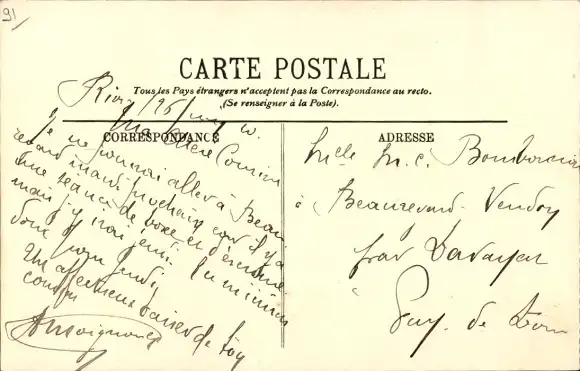 91
CARTE POSTALE
Tous les Pays étrangers n'acceptent pas la Correspondance au recto.
(Se renseigner à la Poste).
CORRESPONDANCE
ADRESSE
Ma chère Cousine
Je ne pourrai aller à Beau
regard mardi prochain car il y a
une séance de boxe et d'escrime
mais j'y irai jeudi.
donc pour jeudi
Un affectueux baiser de ton
cousin
Melle M. C.
à Beauregard-Vendon
par Davayat
Puy-de-Dôme